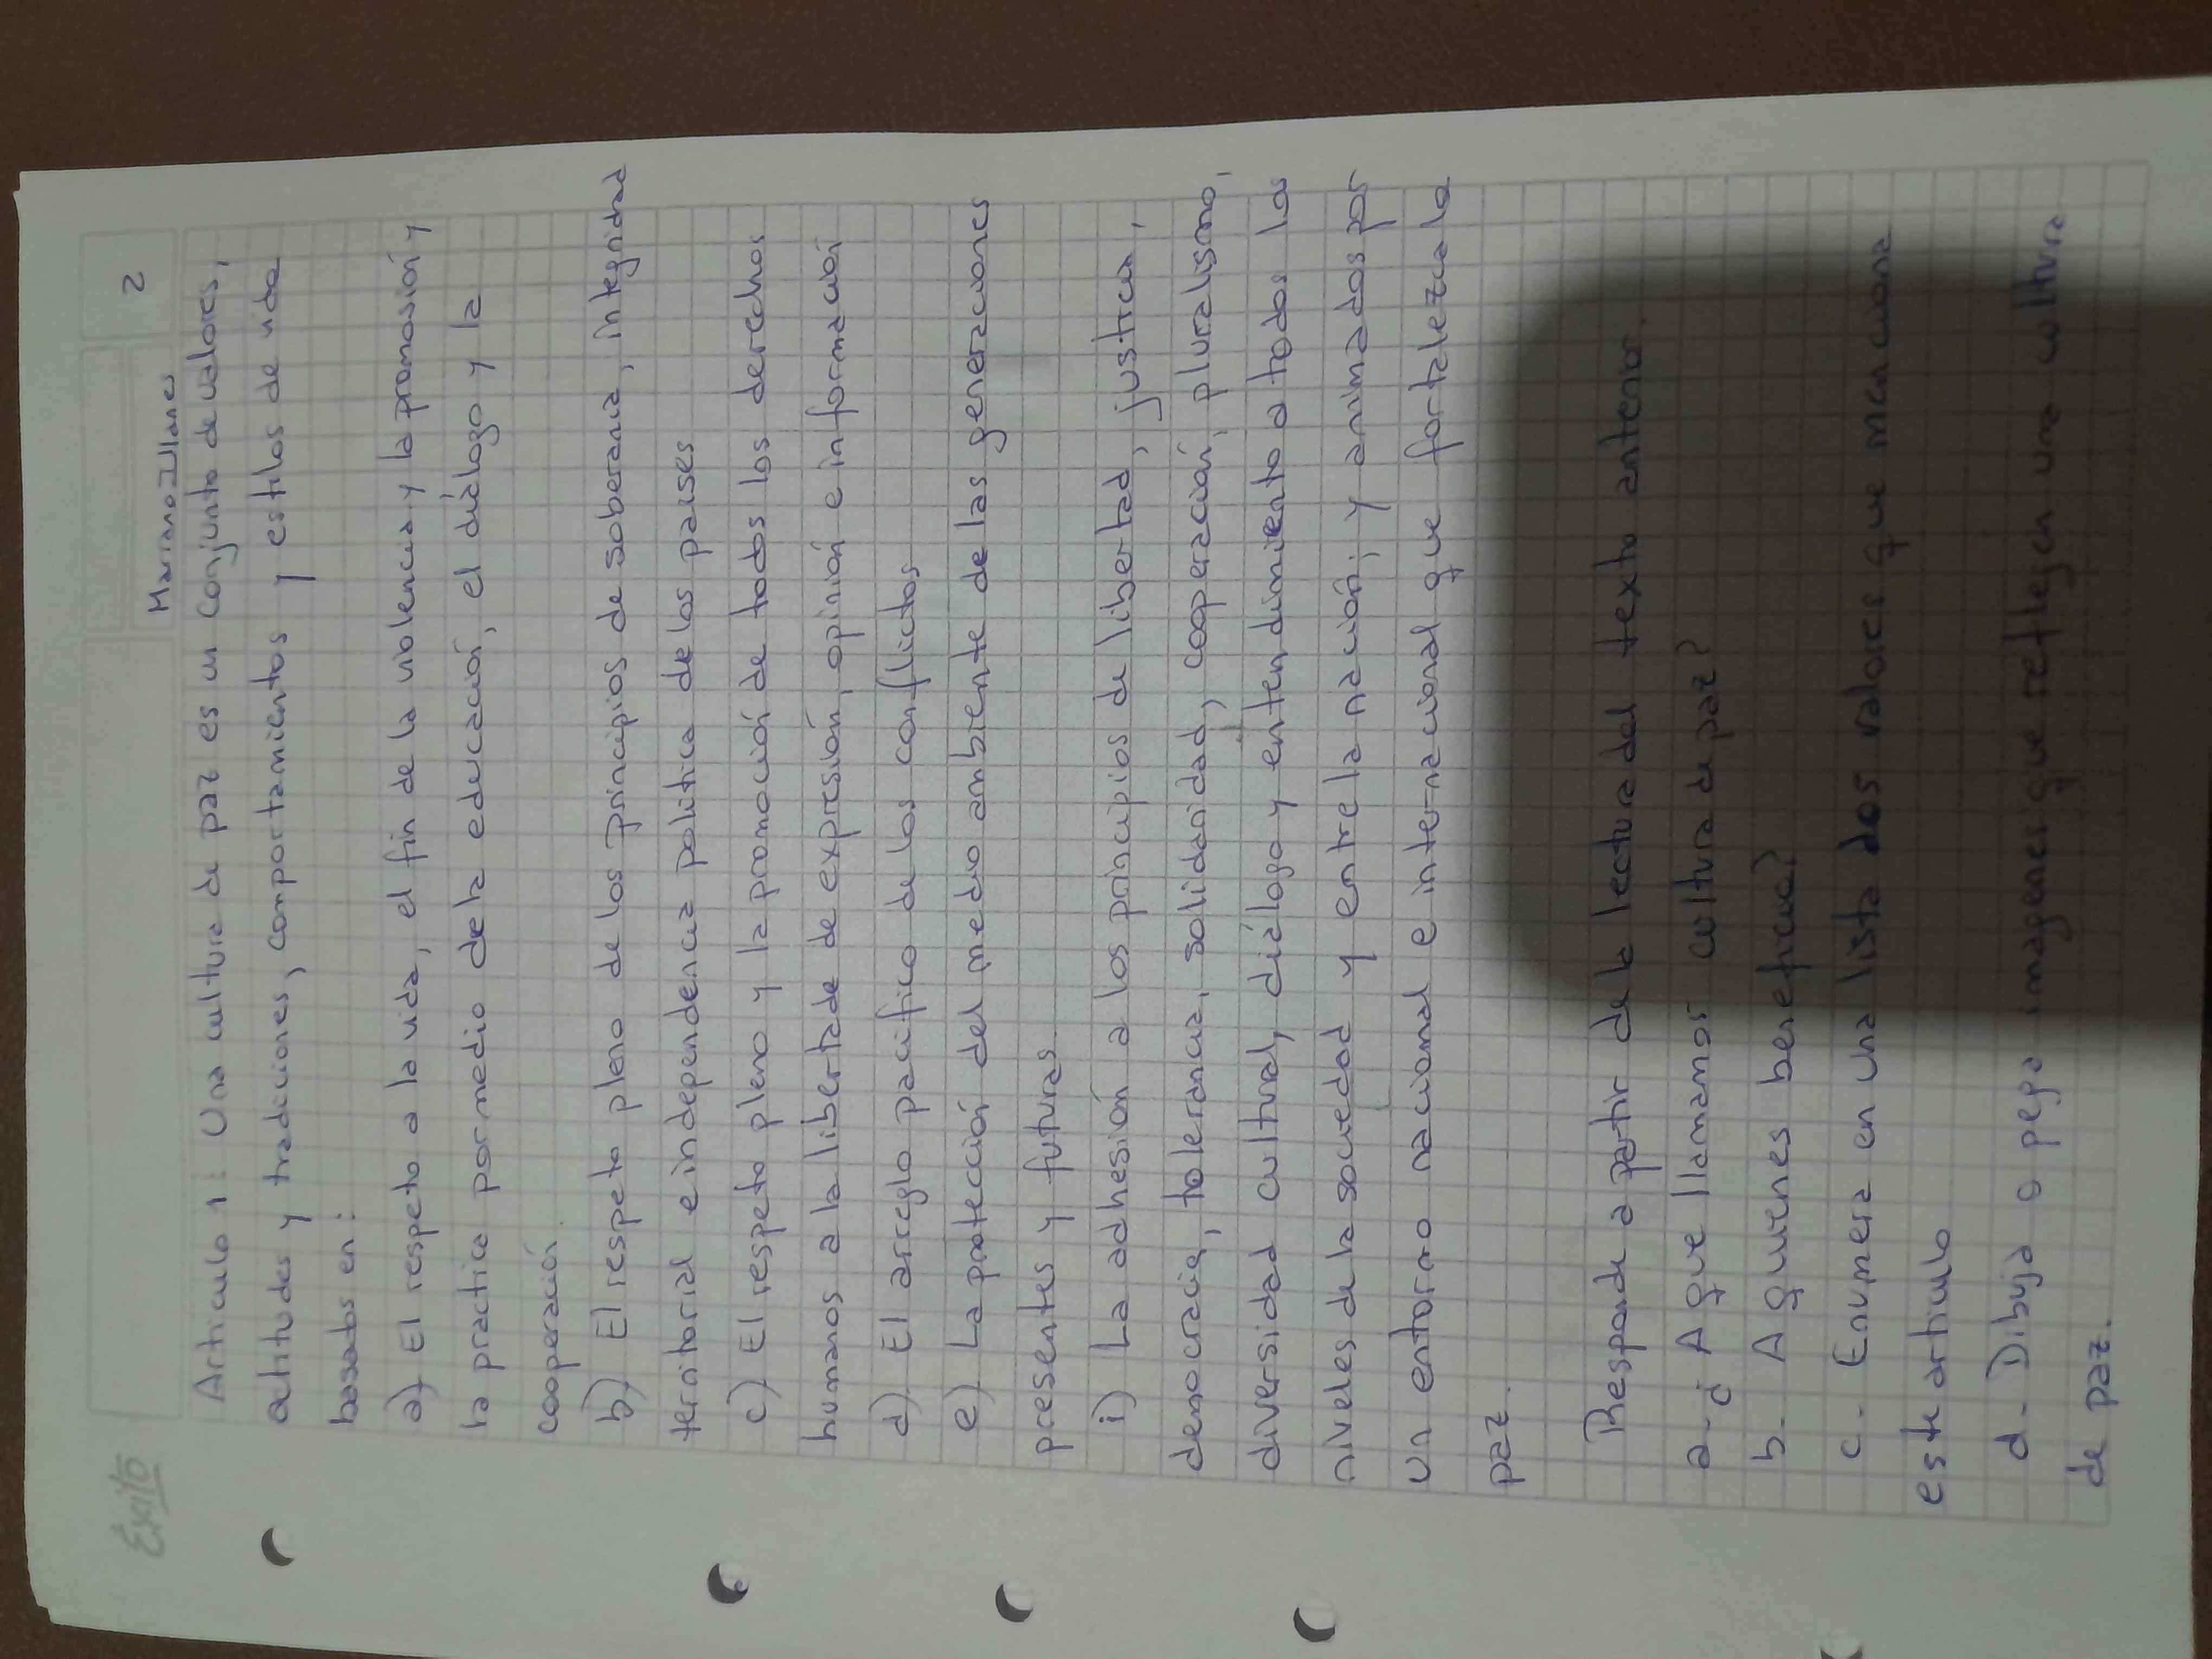 Éxito
2
Mariano Illanes
Articulo 1: Una cultura de paz es un conjunto de valores,
actitudes y tradiciones, comportamientos y estilos de vida
basados en:
a) El respeto a la vida, el fin de la violencia y la promosión y
la practica por medio de la educación, el diálogo y la
cooperación.
b) El respeto pleno de los principios de soberania, integridad
territorial e independencia politica de los paises
c) El respeto pleno y la promoción de todos los derechos
humanos a la libertad de expresión, opinión e información
d) El arreglo pacifico de los conflictos
e) La protección del medio ambiente de las generaciones
presentes y futuras.
i) La adhesión a los principios de libertad, justicia,
democracia, tolerancia, solidaridad, cooperación, pluralismo,
diversidad cultural, diálogo y entendimiento a todos los
niveles de la sociedad y entre la nación; y animados por
un entorno nacional e internacional que fortalezca la
paz.
Responde a partir de la lectura del texto anterior.
a- ¿ A que llamamos cultura de paz?
b- A quienes beneficia?
c- Enumera en una lista los valores que menciona
este artículo
d- Dibuja o pega imagenes que reflejen una cultura
de paz.